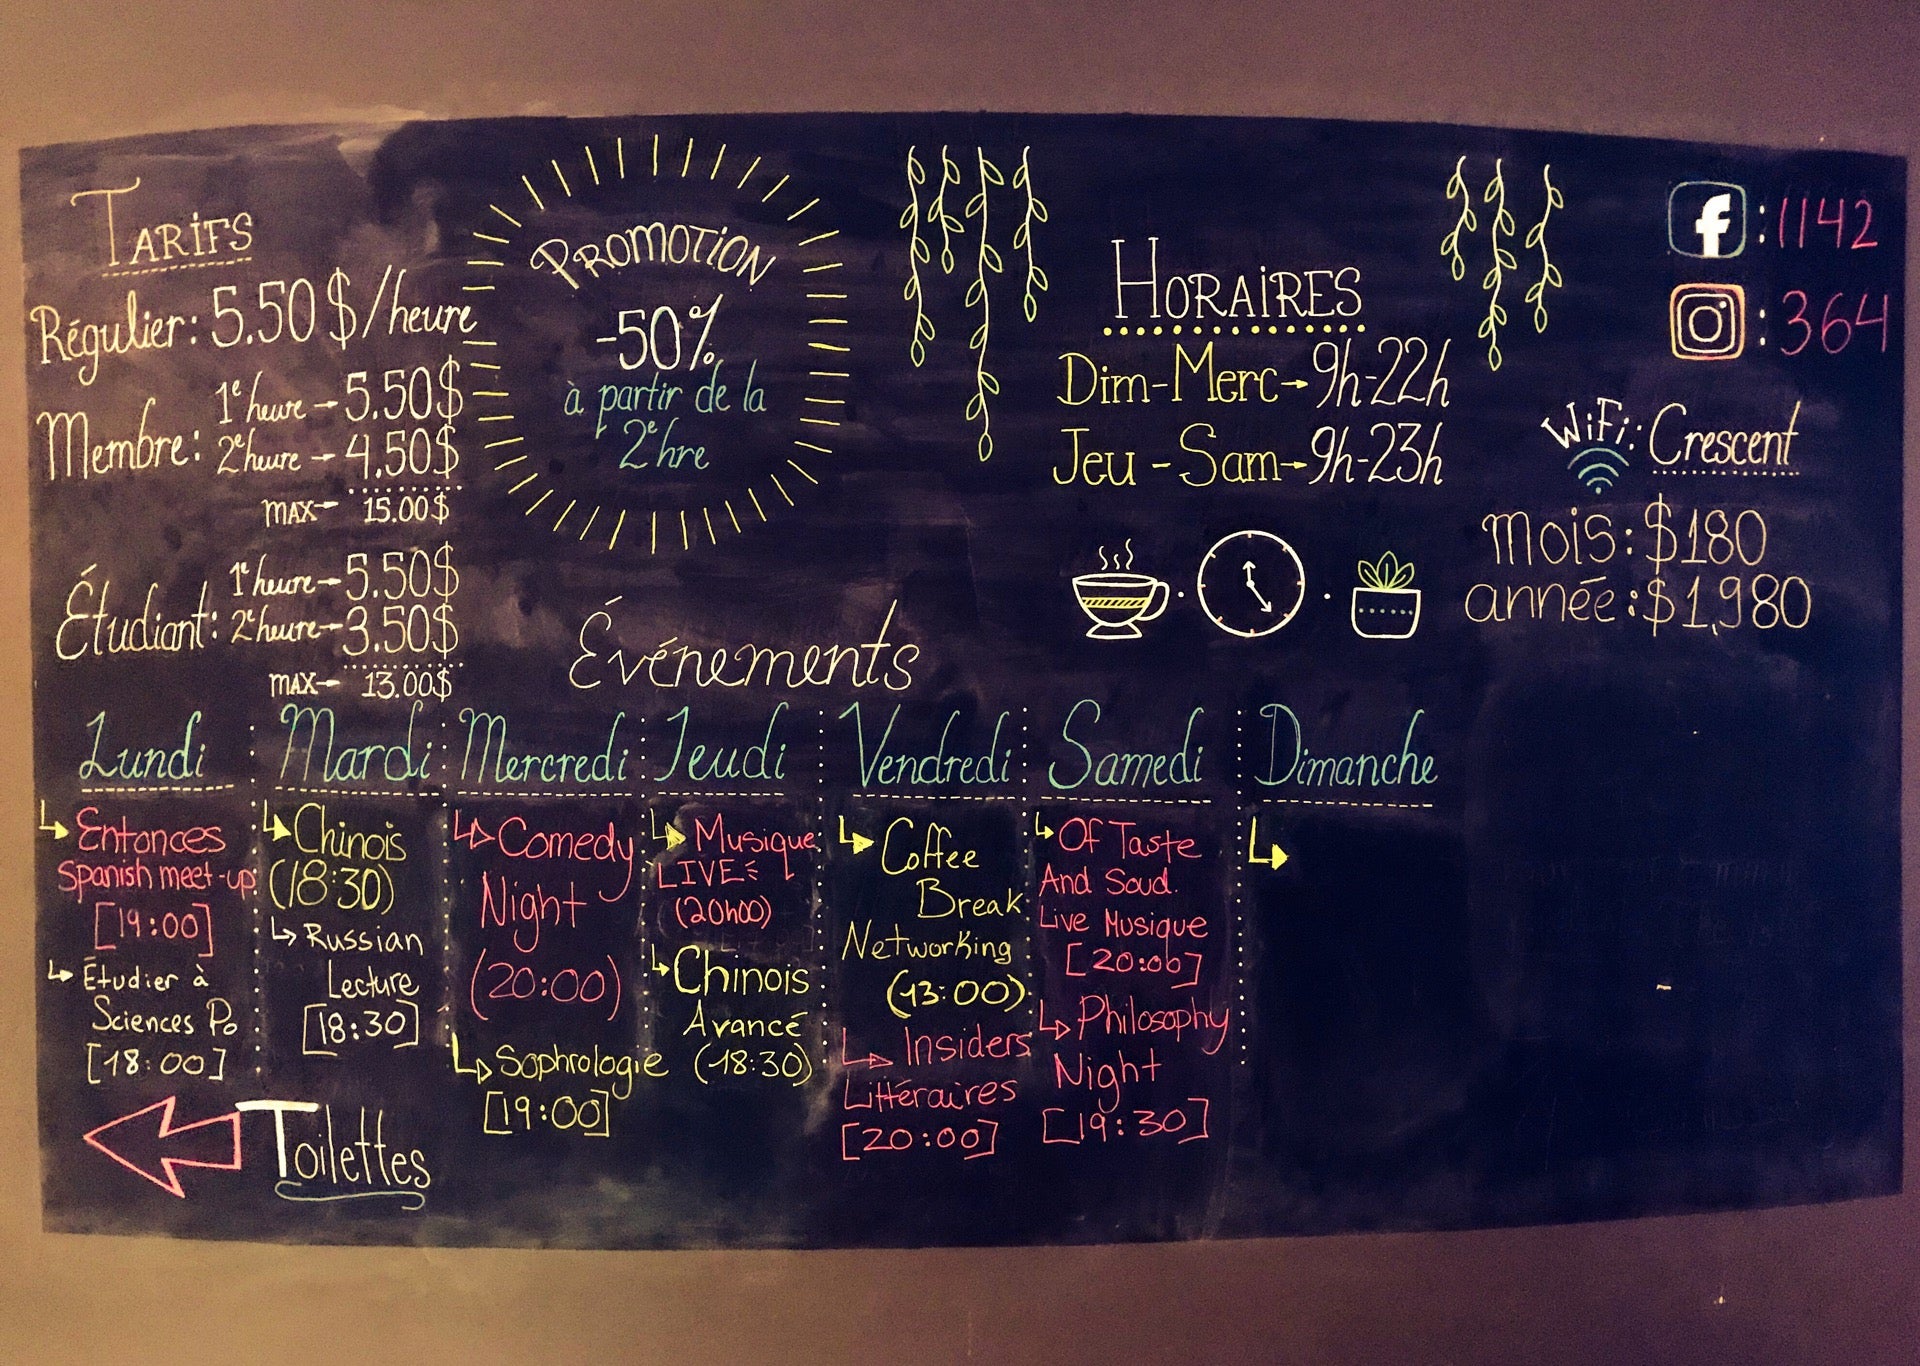 TARIFS
Régulier: 5.50$/heure
Membre: 1e heure → 5.50$
2e heure → 4.50$
MAX → 15.00$
Étudiant: 1e heure → 5.50$
2e heure → 3.50$
MAX → 13.00$
PROMOTION
-50%
à partir de la
2e hre
HORAIRES
Dim-Merc→9h-22h
Jeu-Sam→9h-23h
f:1142
:364
WiFi: Crescent
mois:$180
année:$1,980
Événements
Lundi
Entonces
Spanish meet-up
[19:00]
Étudier à
Sciences Po
[18:00]
Mardi
Chinois
(18:30)
Russian
Lecture
[18:30]
Mercredi
Comedy
Night
(20:00)
Sophrologie
[19:00]
Jeudi
Musique
LIVE
(20h00)
Chinois
Avancé
(18:30)
Vendredi
Coffee
Break
Networking
(13:00)
Insiders
Littéraires
[20:00]
Samedi
Of Taste
And Soud.
Live Musique
[20:00]
Philosophy
Night
[19:30]
Dimanche
Toilettes